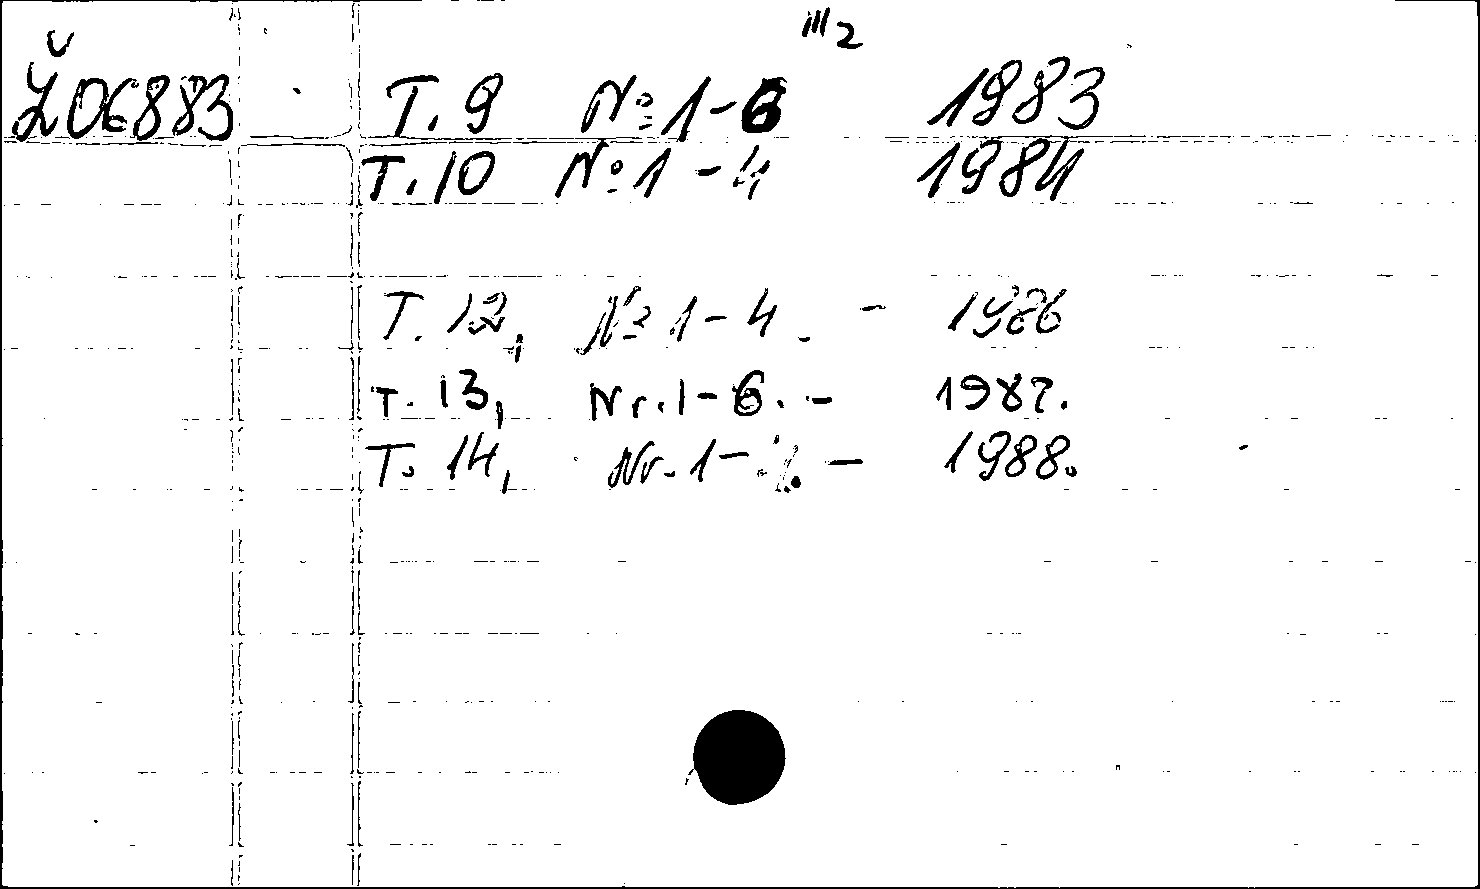 III 2
Ž06883 T. 9 № 1-6 1983
T. 10 № 1-4 1984
T. 12, № 1-4. - 1986
T. 13, Nr. 1-6. - 1987.
T. 14, Nr. 1- - 1988.